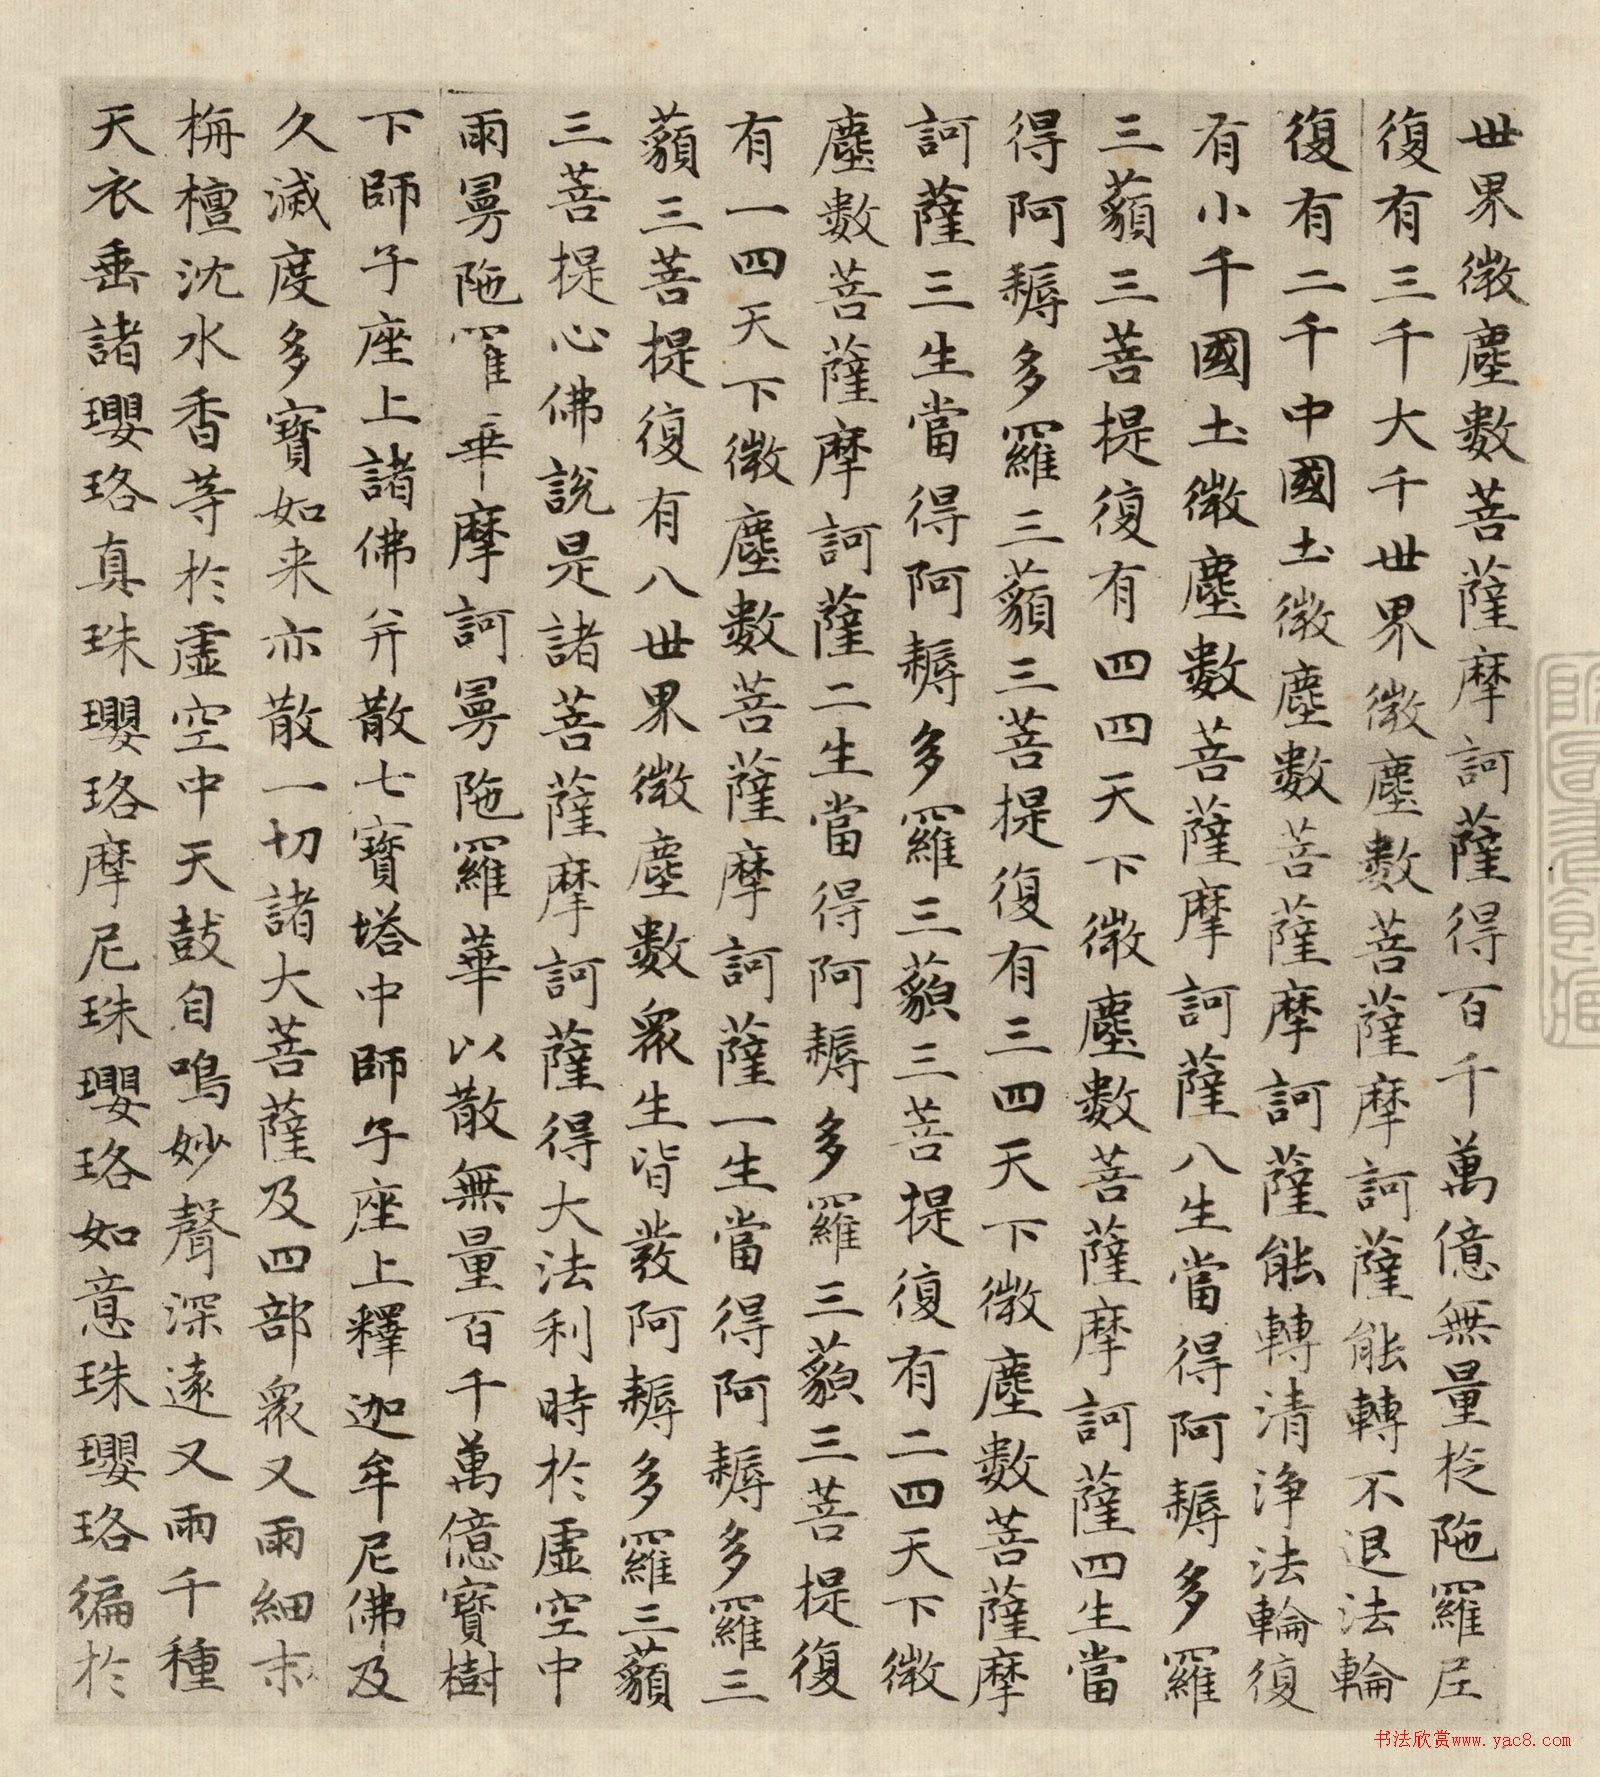 世界微塵數菩薩摩訶薩得百千萬億無量旋陁羅尼
復有三千大千世界微塵數菩薩摩訶薩能轉不退法輪
復有二千中國土微塵數菩薩摩訶薩能轉清淨法輪復
有小千國土微塵數菩薩摩訶薩八生當得阿耨多羅
三藐三菩提復有四四天下微塵數菩薩摩訶薩四生當
得阿耨多羅三藐三菩提復有三四天下微塵數菩薩摩
訶薩三生當得阿耨多羅三藐三菩提復有二四天下微
塵數菩薩摩訶薩二生當得阿耨多羅三藐三菩提復
有一四天下微塵數菩薩摩訶薩一生當得阿耨多羅三
藐三菩提復有八世界微塵數眾生皆發阿耨多羅三藐
三菩提心佛說是諸菩薩摩訶薩得大法利時於虛空中
雨曼陁羅華摩訶曼陁羅華以散無量百千萬億寶樹
下師子座上諸佛并散七寶塔中師子座上釋迦牟尼佛及
久滅度多寶如来亦散一切諸大菩薩及四部眾又雨細末
栴檀沈水香等於虛空中天鼓自鳴妙聲深遠又雨千種
天衣垂諸瓔珞真珠瓔珞摩尼珠瓔珞如意珠瓔珞徧於
书法欣赏www.yac8.com